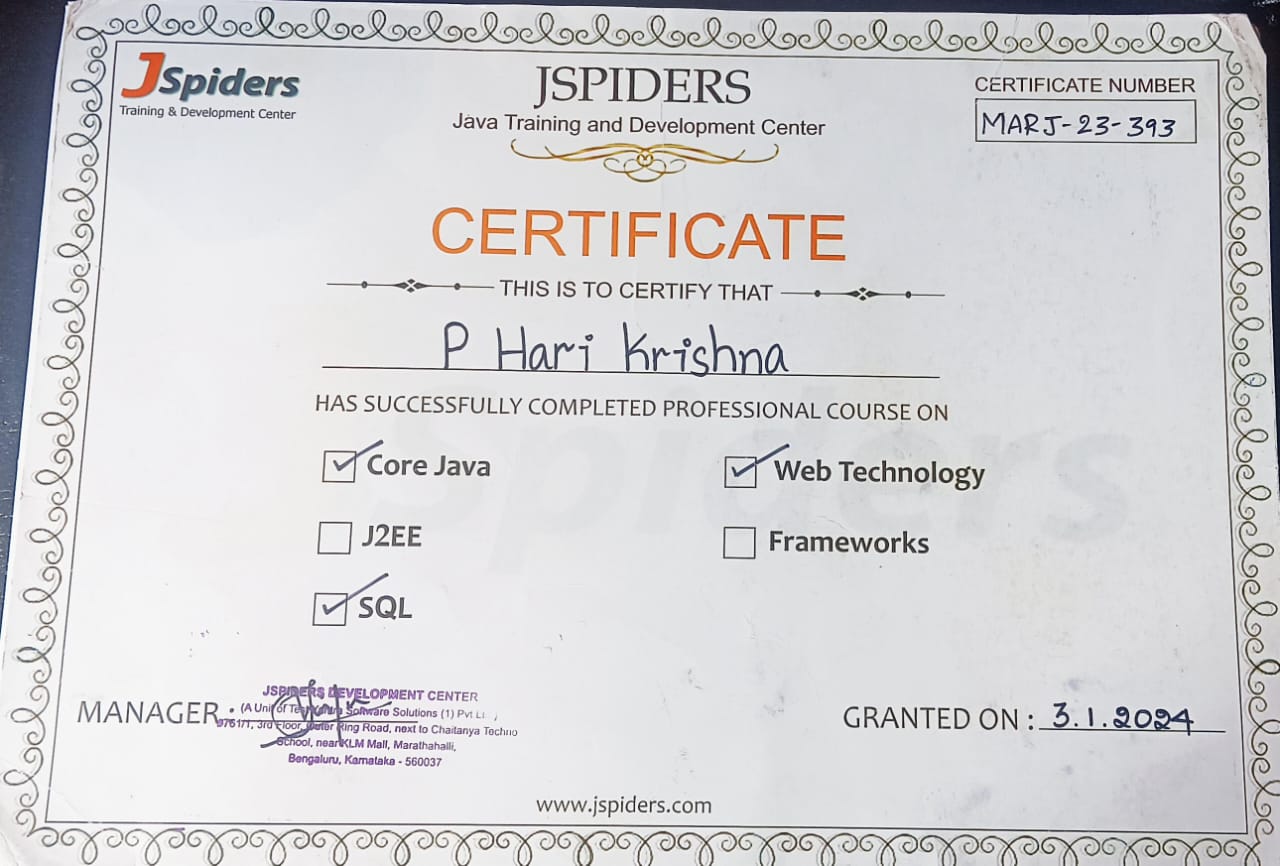 JSpiders
Training & Development Center
JSPIDERS
Java Training and Development Center
CERTIFICATE NUMBER
MARJ-23-393
CERTIFICATE
THIS IS TO CERTIFY THAT
P Hari Krishna
HAS SUCCESSFULLY COMPLETED PROFESSIONAL COURSE ON
Core Java
Web Technology
J2EE
Frameworks
SQL
MANAGER
JSPIDERS DEVELOPMENT CENTER
(A Unit of Software Solutions (1) Pvt
3rd Floor, Outer Ring Road, next to Chaitanya Techno
School, near KLM Mall, Marathahalli,
Bengaluru, Karnataka - 560037
GRANTED ON : 3.1.2024
www.jspiders.com
Spiders